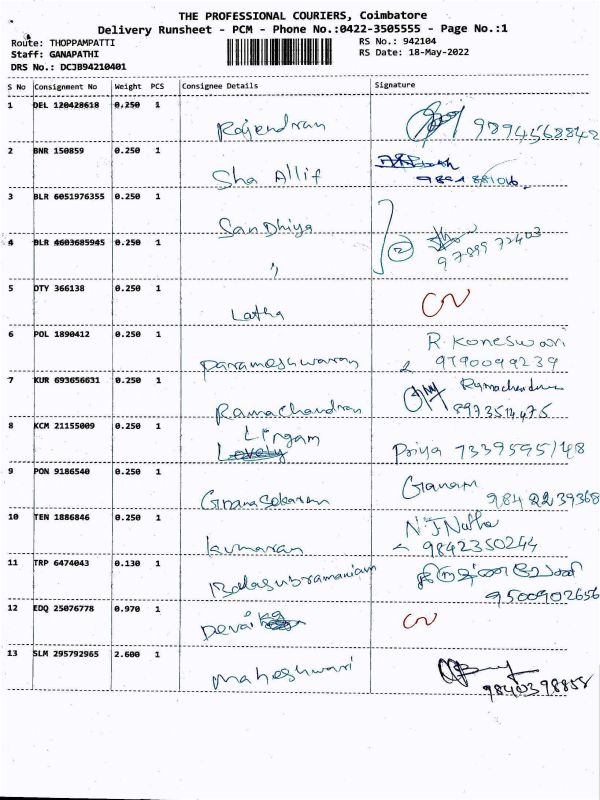 THE PROFESSIONAL COURIERS, Coimbatore
Delivery Runsheet - PCM - Phone No.:0422-3505555 - Page No.:1
Route: THOPPAMPATTI
RS No.: 942104
Staff: GANAPATHI
RS Date: 18-May-2022
DRS No.: DCJB94210401
S No Consignment No Weight PCS Consignee Details Signature
1 DEL 120428618 0.250 1
Rajendran 9894568842
2 BNR 150859 0.250 1
Sha Allif
3 BLR 6051976355 0.250 1
SanDhiya
4 BLR 4603685945 0.250 1
" 2 97899 72403
5 DTY 366138 0.250 1
Latha
6 POL 1890412 0.250 1 R. Koneswari
Parameshwaran 9790099239
7 KUR 693656631 0.250 1 Ramachandran
Ramachandran 8973514475
8 KCM 21155009 0.250 1 Lingam
Lovely Priya 7339595148
9 PON 9186540 0.250 1 Gnanam
Gnanasekaran 984 2239368
10 TEN 1886846 0.250 1 N.J.Natha
kumaran 9842350244
11 TRP 6474043 0.130 1
Balasubramaniam 9500902656
12 EDQ 25076778 0.970 1
Devaika
13 SLM 295792965 2.600 1
Maheshwari 9840398858